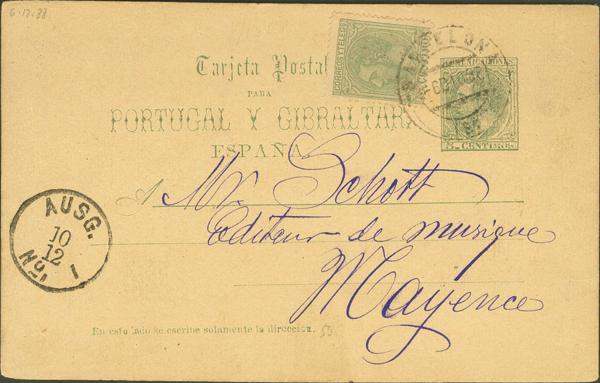 6.12.88
Tarjeta Postal
PARA
PORTUGAL Y GIBRALTAR
ESPAÑA
CORREOS Y TELEG
BARCELONA
COMUNICACIONES
5 CENTIMO.
A Mr. Schott
Editeur de musique
Mayence
AUSG.
10
12
No. 1
En este lado se escribe solamente la dirección.